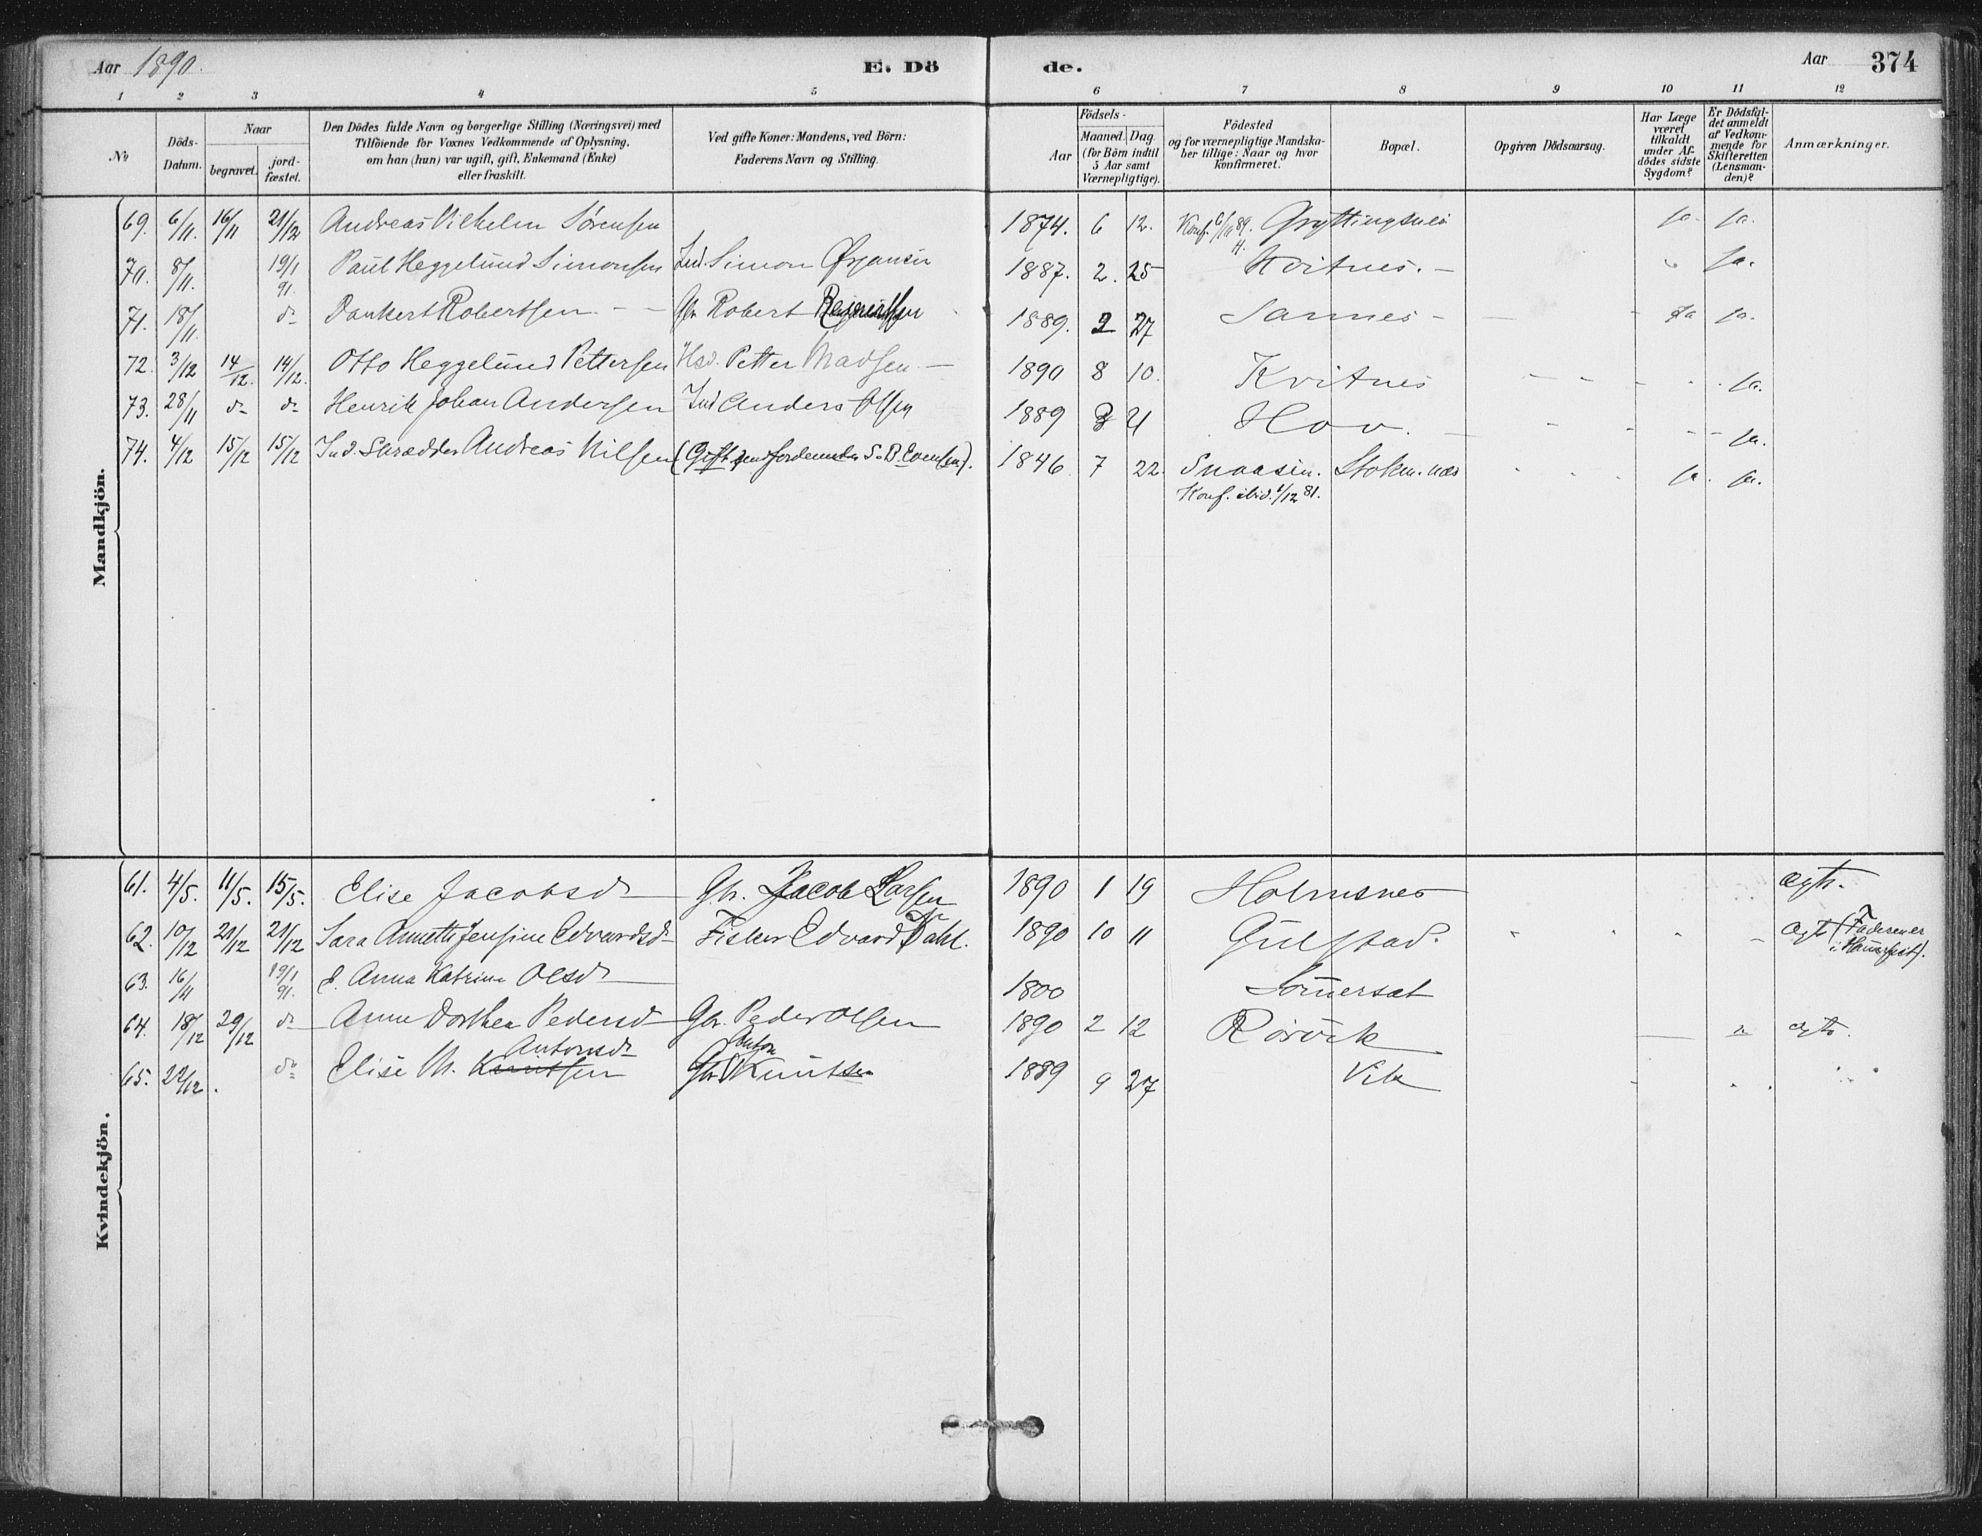 Aar 1890. E. Dö de. Aar 374
1 2 3 4 5 6 7 8 9 10 11 12
No
Döds-Datum.
Naar
begravet.
jord-fæstet.
Den Dödes fulde Navn og borgerlige Stilling (Næringsvei) med
Tilföiende for Voxnes Vedkommende af Oplysning,
om han (hun) var ugift, gift, Enkemand (Enke)
eller fraskilt.
Ved gifte Koner: Mandens, ved Börn:
Faderens Navn og Stilling.
Födsels-
Aar
Maaned. Dag.
(for Börn indtil
5 Aar samt
Værnepligtige).
Födested
og for værnepligtige Mandska-
ber tillige: Naar og hvor
konfirmeret.
Bopæl.
Opgiven Dödsaarsag.
Har Læge
været
tilkaldt
under Af-
dödes sidste
Sygdom?
Er Dödsfal-
det anmeldt
af Vedkom-
mende for
Skifteretten
(Lensman-
den)?
Anmærkninger.
Mandkjön.
69. 6/11. 16/11 21/12 Andreas Vilhelm Sørensen 1874. 6 12. Konf. Gryttingsnes ja. ja.
70. 8/11. 19/1 91. Paul Heggelund Simonsen Ind. Simon Ørjansen 1887. 2. 25 Kvitnes. — ja.
71. 18/11. do Dankert Robertsen — — Gbr Robert 1889. 2 27 Sannes — — ja ja.
72. 3/12 14/12. 14/12. Otto Heggelund Pettersen Hsd. Petter Madsen — 1890 8 10. Kvitnes ja.
73. 28/11 do do Henrik Johan Andersen Ind Anders Olsen 1889 Hov. — ja.
74. 4/12 15/12 15/12 Ind. Skrædder Andreas Nilsen (Gift S. B. Evensen). 1846 7 22. Snaasen. Stokm.næs ja. ja.
Konf. ibid. 1/12 81.
Kvindekjön.
61. 4/5. 11/5. 15/5. Elise Jacobsdr Gbr. Jacob Larsen 1890 1 19 Holmsnes agtr.
62. 10/12 21/12 21/12 Sara Annette Jensine Edvardsd Fisker Edvard Dahl. 1890 10 11 Gulstad. agtr (Faderen er
i Hammerfest).
63. 16/11 19/1 91. E. Anna Katrine Olsdr 1800 Sommersæt
64. 18/12 29/12 do Anne Dorthea Pedersd Gbr. Peder Olsen 1890 2 12 Rörvik — agtr.
65. 22/12. do Elise M. Knutsen Antonsdr Gbr Anton Knutsen 1889 9 27 Vik